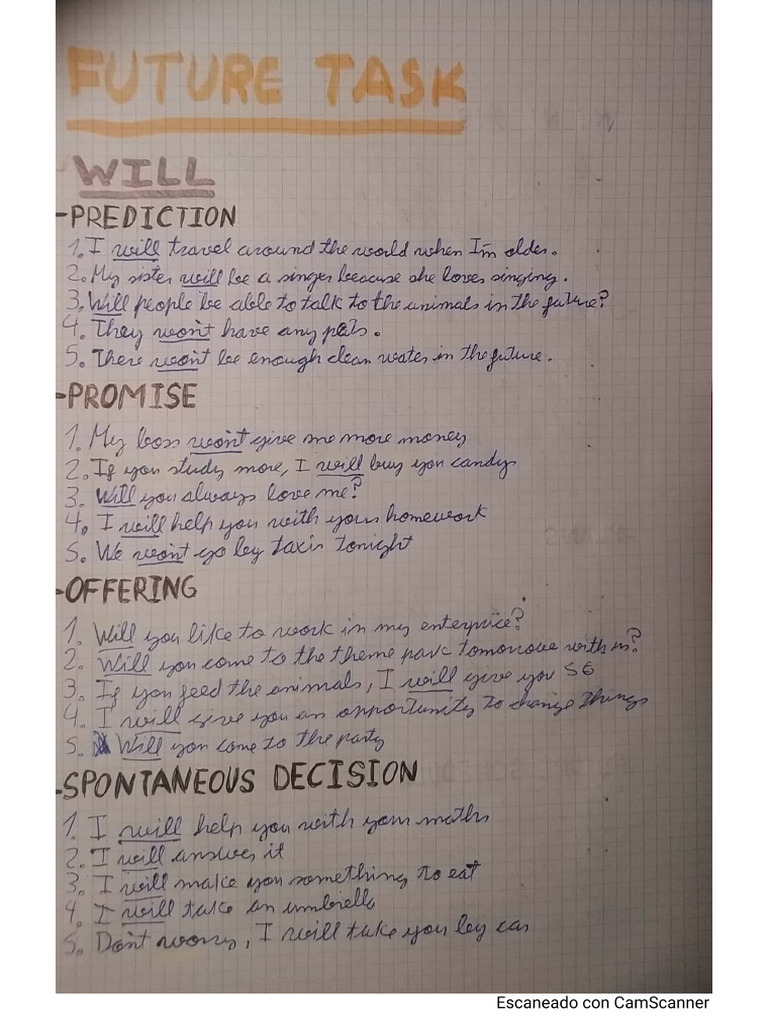 FUTURE TASK
WILL
-PREDICTION
1. I will travel around the world when I'm older.
2. My sister will be a singer because she loves singing.
3. Will people be able to talk to the animals in the future?
4. They won't have any pets.
5. There won't be enough clean water in the future.
-PROMISE
1. My boss won't give me more money
2. If you study more, I will buy you candys
3. Will you always love me?
4. I will help you with your homework
5. We won't go by taxis tonight
-OFFERING
1. Will you like to work in my enterprice?
2. Will you come to the theme park tomorrow with us?
3. If you feed the animals, I will give you 5€
4. I will give you an opportunity to change things
5. Will you come to the party
-SPONTANEOUS DECISION
1. I will help you with your maths
2. I will answer it
3. I will make you something to eat
4. I will take an umbrella
5. Don't worry, I will take you by car
Escaneado con CamScanner